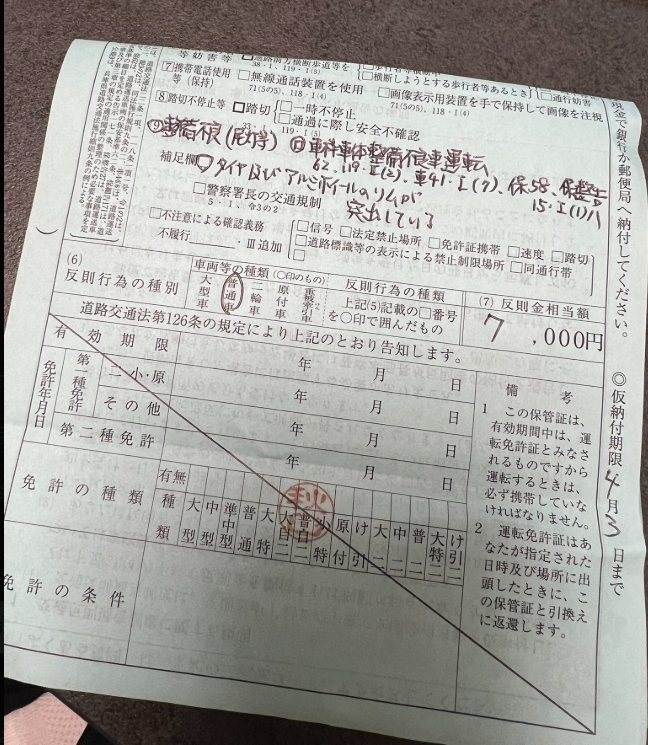 等妨害等
38・1、119・1(5)
□通行妨害
横断しようとする歩行者等あるとき
7 携帯電話使用等(保持)
□無線通話装置を使用
71(5の5)、118・1(4)
□画像表示用装置を手で保持して画像を注視
71(5の5)、118・1(4)
8 踏切不停止等 □踏切
□一時不停止
□通過に際し安全不確認
119・1(5)
補足欄
整備不良(尾灯等)
62、119・I(2)、車41・I(7)、保58、
タイヤ及びアルミホイールのリムが
突出している
□警察署長の交通規制
5・1、令3の2
□不注意による確認義務不履行
・Ⅲ追加
□信号 □法定禁止場所 □免許証携帯 □速度 □踏切
□道路標識等の表示による禁止制限場所 □同通行帯
(6)
反則行為の種別
車両等の種類(○印のもの)
大型車
普通車
二輪車
原付車
重被牽引車
反則行為の種類
上記(5)記載の□番号を○印で囲んだもの
(7) 反則金相当額
7,000円
道路交通法第126条の規定により上記のとおり告知します。
有効期限
年 月 日
免許年月日
第一種免許
二・小・原
年 月 日
その他
年 月 日
第二種免許
年 月 日
免許の種類
有無
種類
大型
中型
準中型
普通
大特
大自二
普自二
小特
原付
け引
大二
中二
普二
大特二
け引二
免許の条件
備考
1 この保管証は、有効期間中は、運転免許証とみなされるものですから運転するときは、必ず携帯していなければなりません。
2 運転免許証はあなたが指定された日時及び場所に出頭したときに、この保管証と引換えに返還します。
現金で銀行か郵便局へ納付してください。
◎仮納付期限 4月3日まで